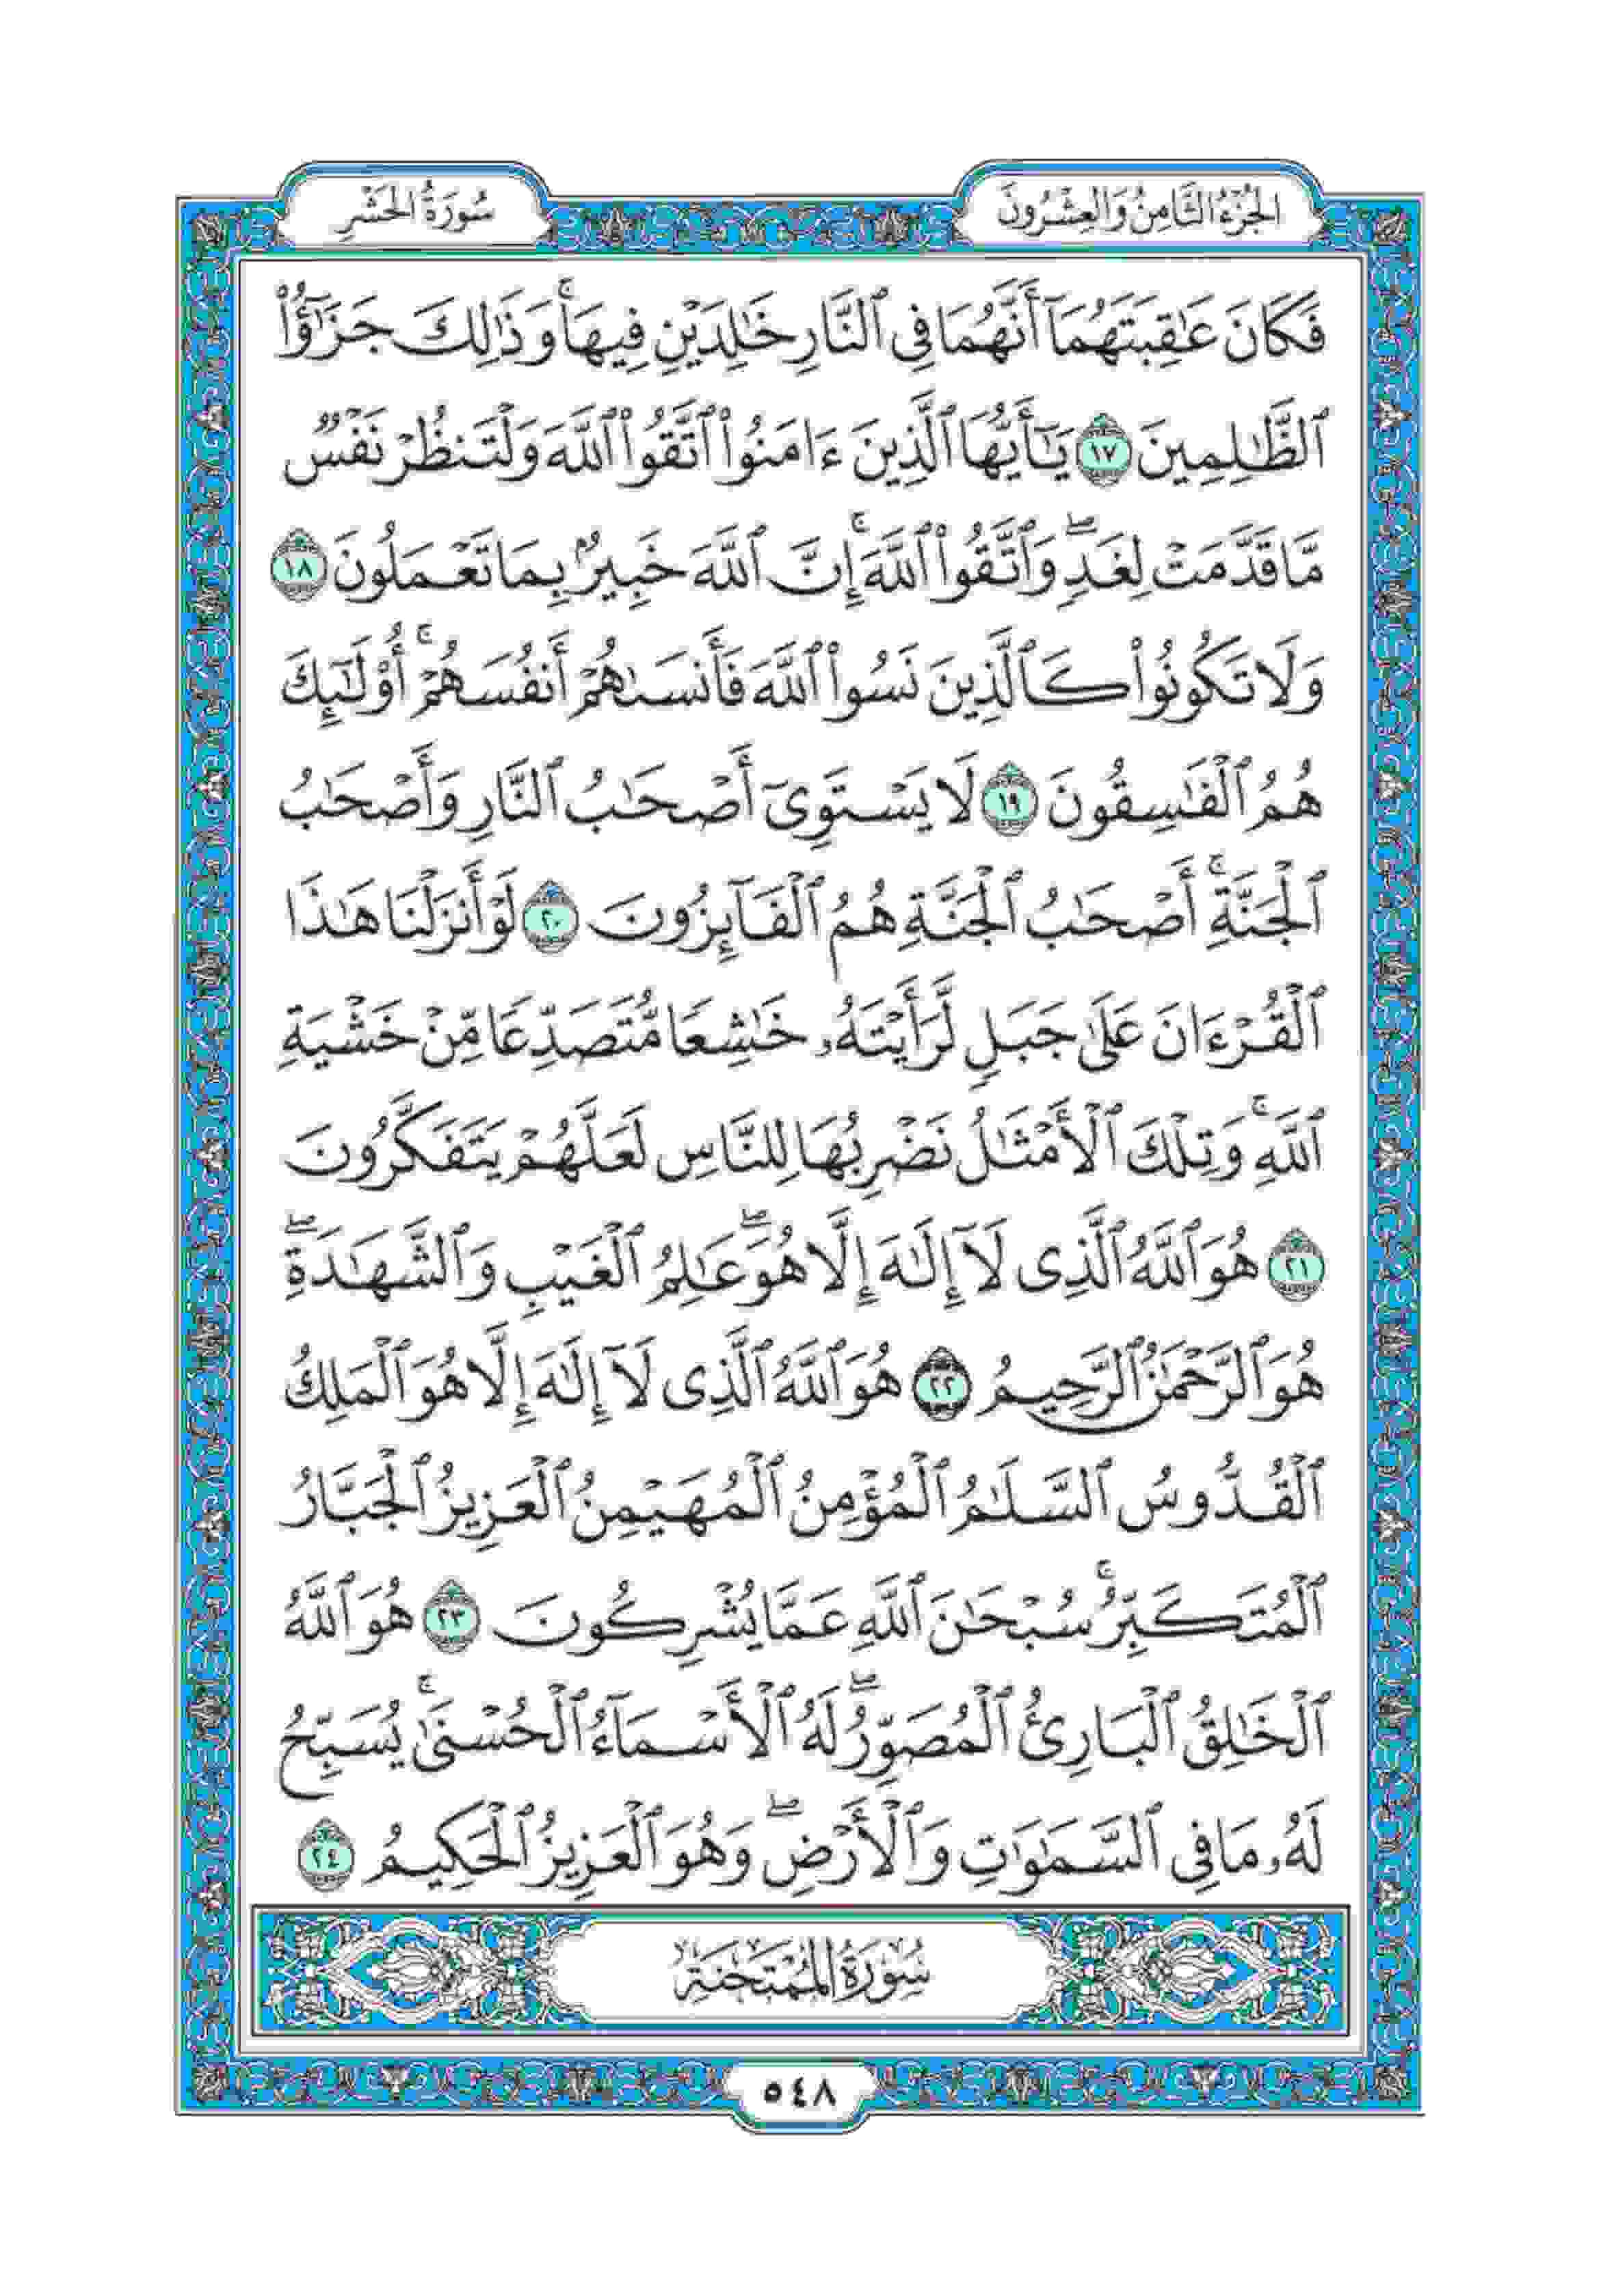 الجُزْءُ الثَّامِنُ وَالعِشْرُونَ
سُورَةُ الحَشْرِ
فَكَانَ عَٰقِبَتَهُمَآ أَنَّهُمَا فِى ٱلنَّارِ خَٰلِدَيْنِ فِيهَا ۚ وَذَٰلِكَ جَزَٰٓؤُا۟
ٱلظَّٰلِمِينَ ١٧ يَٰٓأَيُّهَا ٱلَّذِينَ ءَامَنُوا۟ ٱتَّقُوا۟ ٱللَّهَ وَلْتَنظُرْ نَفْسٌ
مَّا قَدَّمَتْ لِغَدٍ ۖ وَٱتَّقُوا۟ ٱللَّهَ ۚ إِنَّ ٱللَّهَ خَبِيرٌۢ بِمَا تَعْمَلُونَ ١٨
وَلَا تَكُونُوا۟ كَٱلَّذِينَ نَسُوا۟ ٱللَّهَ فَأَنسَىٰهُمْ أَنفُسَهُمْ ۚ أُو۟لَٰٓئِكَ
هُمُ ٱلْفَٰسِقُونَ ١٩ لَا يَسْتَوِىٓ أَصْحَٰبُ ٱلنَّارِ وَأَصْحَٰبُ
ٱلْجَنَّةِ ۚ أَصْحَٰبُ ٱلْجَنَّةِ هُمُ ٱلْفَآئِزُونَ ٢٠ لَوْ أَنزَلْنَا هَٰذَا
ٱلْقُرْءَانَ عَلَىٰ جَبَلٍ لَّرَأَيْتَهُۥ خَٰشِعًا مُّتَصَدِّعًا مِّنْ خَشْيَةِ
ٱللَّهِ ۚ وَتِلْكَ ٱلْأَمْثَٰلُ نَضْرِبُهَا لِلنَّاسِ لَعَلَّهُمْ يَتَفَكَّرُونَ
٢١ هُوَ ٱللَّهُ ٱلَّذِى لَآ إِلَٰهَ إِلَّا هُوَ ۖ عَٰلِمُ ٱلْغَيْبِ وَٱلشَّهَٰدَةِ ۖ
هُوَ ٱلرَّحْمَٰنُ ٱلرَّحِيمُ ٢٢ هُوَ ٱللَّهُ ٱلَّذِى لَآ إِلَٰهَ إِلَّا هُوَ ٱلْمَلِكُ
ٱلْقُدُّوسُ ٱلسَّلَٰمُ ٱلْمُؤْمِنُ ٱلْمُهَيْمِنُ ٱلْعَزِيزُ ٱلْجَبَّارُ
ٱلْمُتَكَبِّرُ ۚ سُبْحَٰنَ ٱللَّهِ عَمَّا يُشْرِكُونَ ٢٣ هُوَ ٱللَّهُ
ٱلْخَٰلِقُ ٱلْبَارِئُ ٱلْمُصَوِّرُ ۖ لَهُ ٱلْأَسْمَآءُ ٱلْحُسْنَىٰ ۚ يُسَبِّحُ
لَهُۥ مَا فِى ٱلسَّمَٰوَٰتِ وَٱلْأَرْضِ ۖ وَهُوَ ٱلْعَزِيزُ ٱلْحَكِيمُ ٢٤
سُورَةُ المُمْتَحَنَةِ
٥٤٨